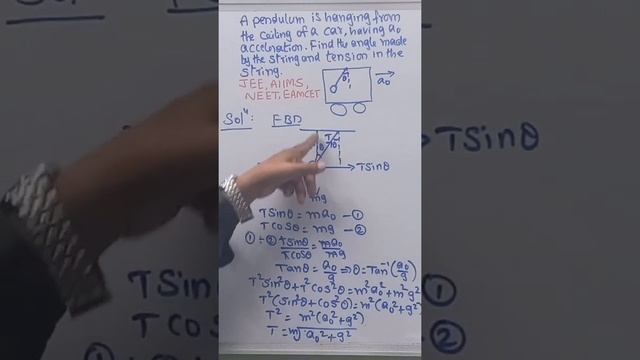 A pendulum is hanging from
the ceiling of a car, having a₀
accelnation. Find the angle made
by the string and tension in the
string.
JEE, AIIMS,
NEET, EAMCET
θ
a₀
Solⁿ: FBD
T
θ θ
TSinθ
mg
TSinθ = ma₀ —①
TCosθ = mg —②
①÷② TSinθ/TCosθ = ma₀/mg
Tanθ = a₀/g ⇒ θ = Tan⁻¹(a₀/g)
T²Sin²θ + T²Cos²θ = m²a₀² + m²g²
T²(Sin²θ + Cos²θ) = m²(a₀² + g²)
T² = m²(a₀² + g²)
T = m√a₀² + g²